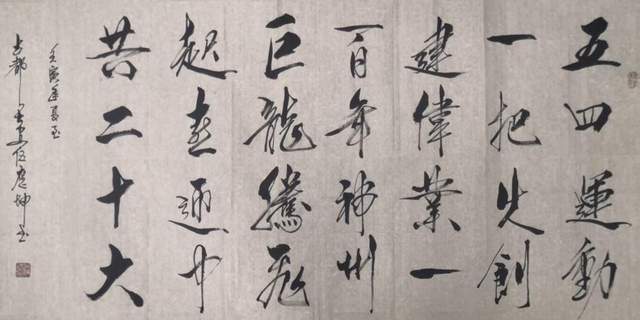 五四運動
一把火創
建偉業一
百年神州
巨龍騰飛
起喜迎中
共二十大
壬寅年夏至